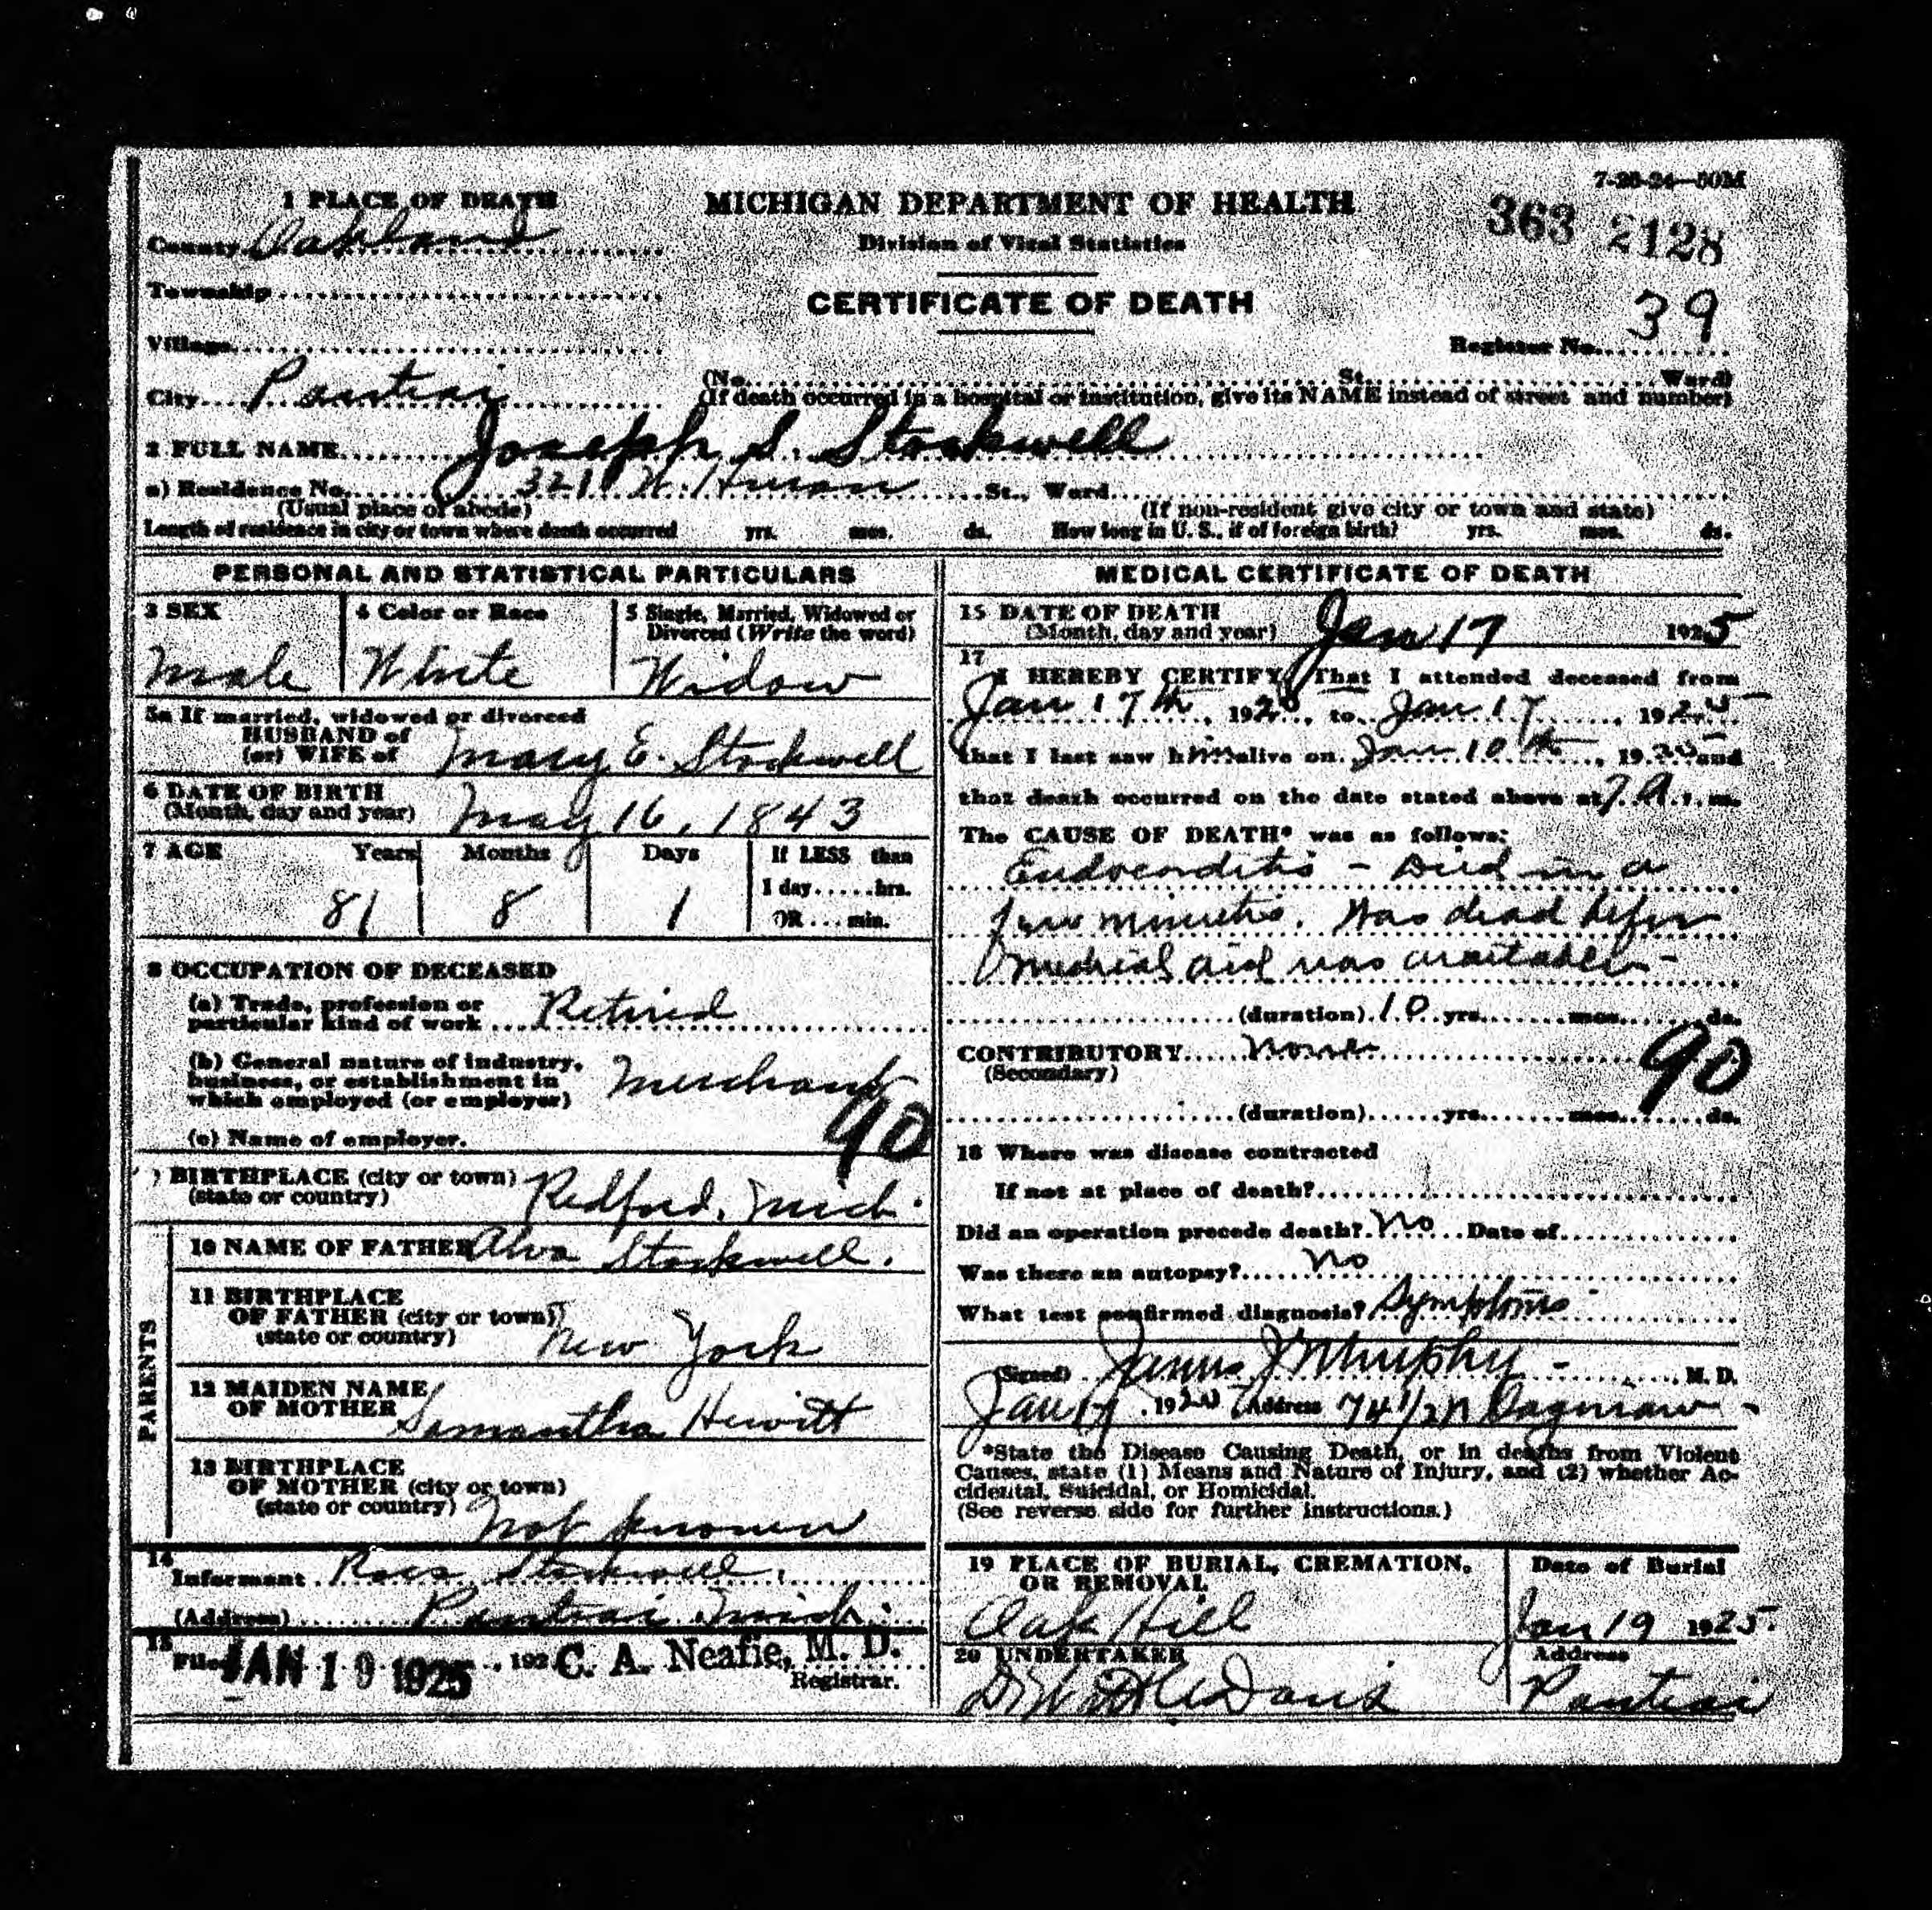 7-26-24—50M
1 PLACE OF DEATH
MICHIGAN DEPARTMENT OF HEALTH
363 2128
County Oakland
Division of Vital Statistics
Township
CERTIFICATE OF DEATH
39
Village
Register No.
City Pontiac
(No. St. Ward)
(If death occurred in a hospital or institution, give its NAME instead of street and number)
2 FULL NAME Joseph S. Stockwell
a) Residence No. W. Huron St., Ward
(Usual place of abode)
(If non-resident give city or town and state)
Length of residence in city or town where death occurred yrs. mos. ds. How long in U. S., if of foreign birth? yrs. mos. ds.
PERSONAL AND STATISTICAL PARTICULARS
3 SEX
Male
4 Color or Race
White
5 Single, Married, Widowed or
Divorced (Write the word)
Widow
5a If married, widowed or divorced
HUSBAND of
(or) WIFE of Mary E. Stockwell
6 DATE OF BIRTH
(Month, day and year) May 16, 1843
7 AGE Years Months Days If LESS than
1 day......hrs.
81 8 1 OR....min.
8 OCCUPATION OF DECEASED
(a) Trade, profession or
particular kind of work Retired
(b) General nature of industry,
business, or establishment in
which employed (or employer) Merchant
90
(c) Name of employer.
9 BIRTHPLACE (city or town)
(state or country) Redford, Mich.
PARENTS
10 NAME OF FATHER Alva Stockwell.
11 BIRTHPLACE
OF FATHER (city or town)
(state or country) New York
12 MAIDEN NAME
OF MOTHER Samantha Hewitt
13 BIRTHPLACE
OF MOTHER (city or town)
(state or country) Not known
14
Informant Ross Stockwell.
(Address) Pontiac Mich.
15
Filed JAN 19 1925, 192 C. A. Neafie, M. D.
Registrar.
MEDICAL CERTIFICATE OF DEATH
15 DATE OF DEATH
(Month, day and year) Jan 17 1925
17
I HEREBY CERTIFY, That I attended deceased from
Jan 17th, 192 to Jan 17, 1925
that I last saw him alive on Jan 10th, 1925 and
that death occurred on the date stated above at 7 A. m.
The CAUSE OF DEATH* was as follows:
Endocarditis - Died in a
few minutes. Was dead before
medical aid was available -
(duration) 10 yrs. mos. ds.
CONTRIBUTORY None
(Secondary)
90
(duration) yrs. mos. ds.
18 Where was disease contracted
If not at place of death?
Did an operation precede death? No Date of
Was there an autopsy? No
What test confirmed diagnosis? Symptoms
(Signed) James J Murphy - M. D.
Jan 17, 1925 (Address 74 1/2 N Saginaw -
*State the Disease Causing Death, or in deaths from Violent
Causes, state (1) Means and Nature of Injury, and (2) whether Ac-
cidental, Suicidal, or Homicidal.
(See reverse side for further instructions.)
19 PLACE OF BURIAL, CREMATION,
OR REMOVAL
Oak Hill
Date of Burial
Jan 19 1925.
20 UNDERTAKER
Davis
Address
Pontiac